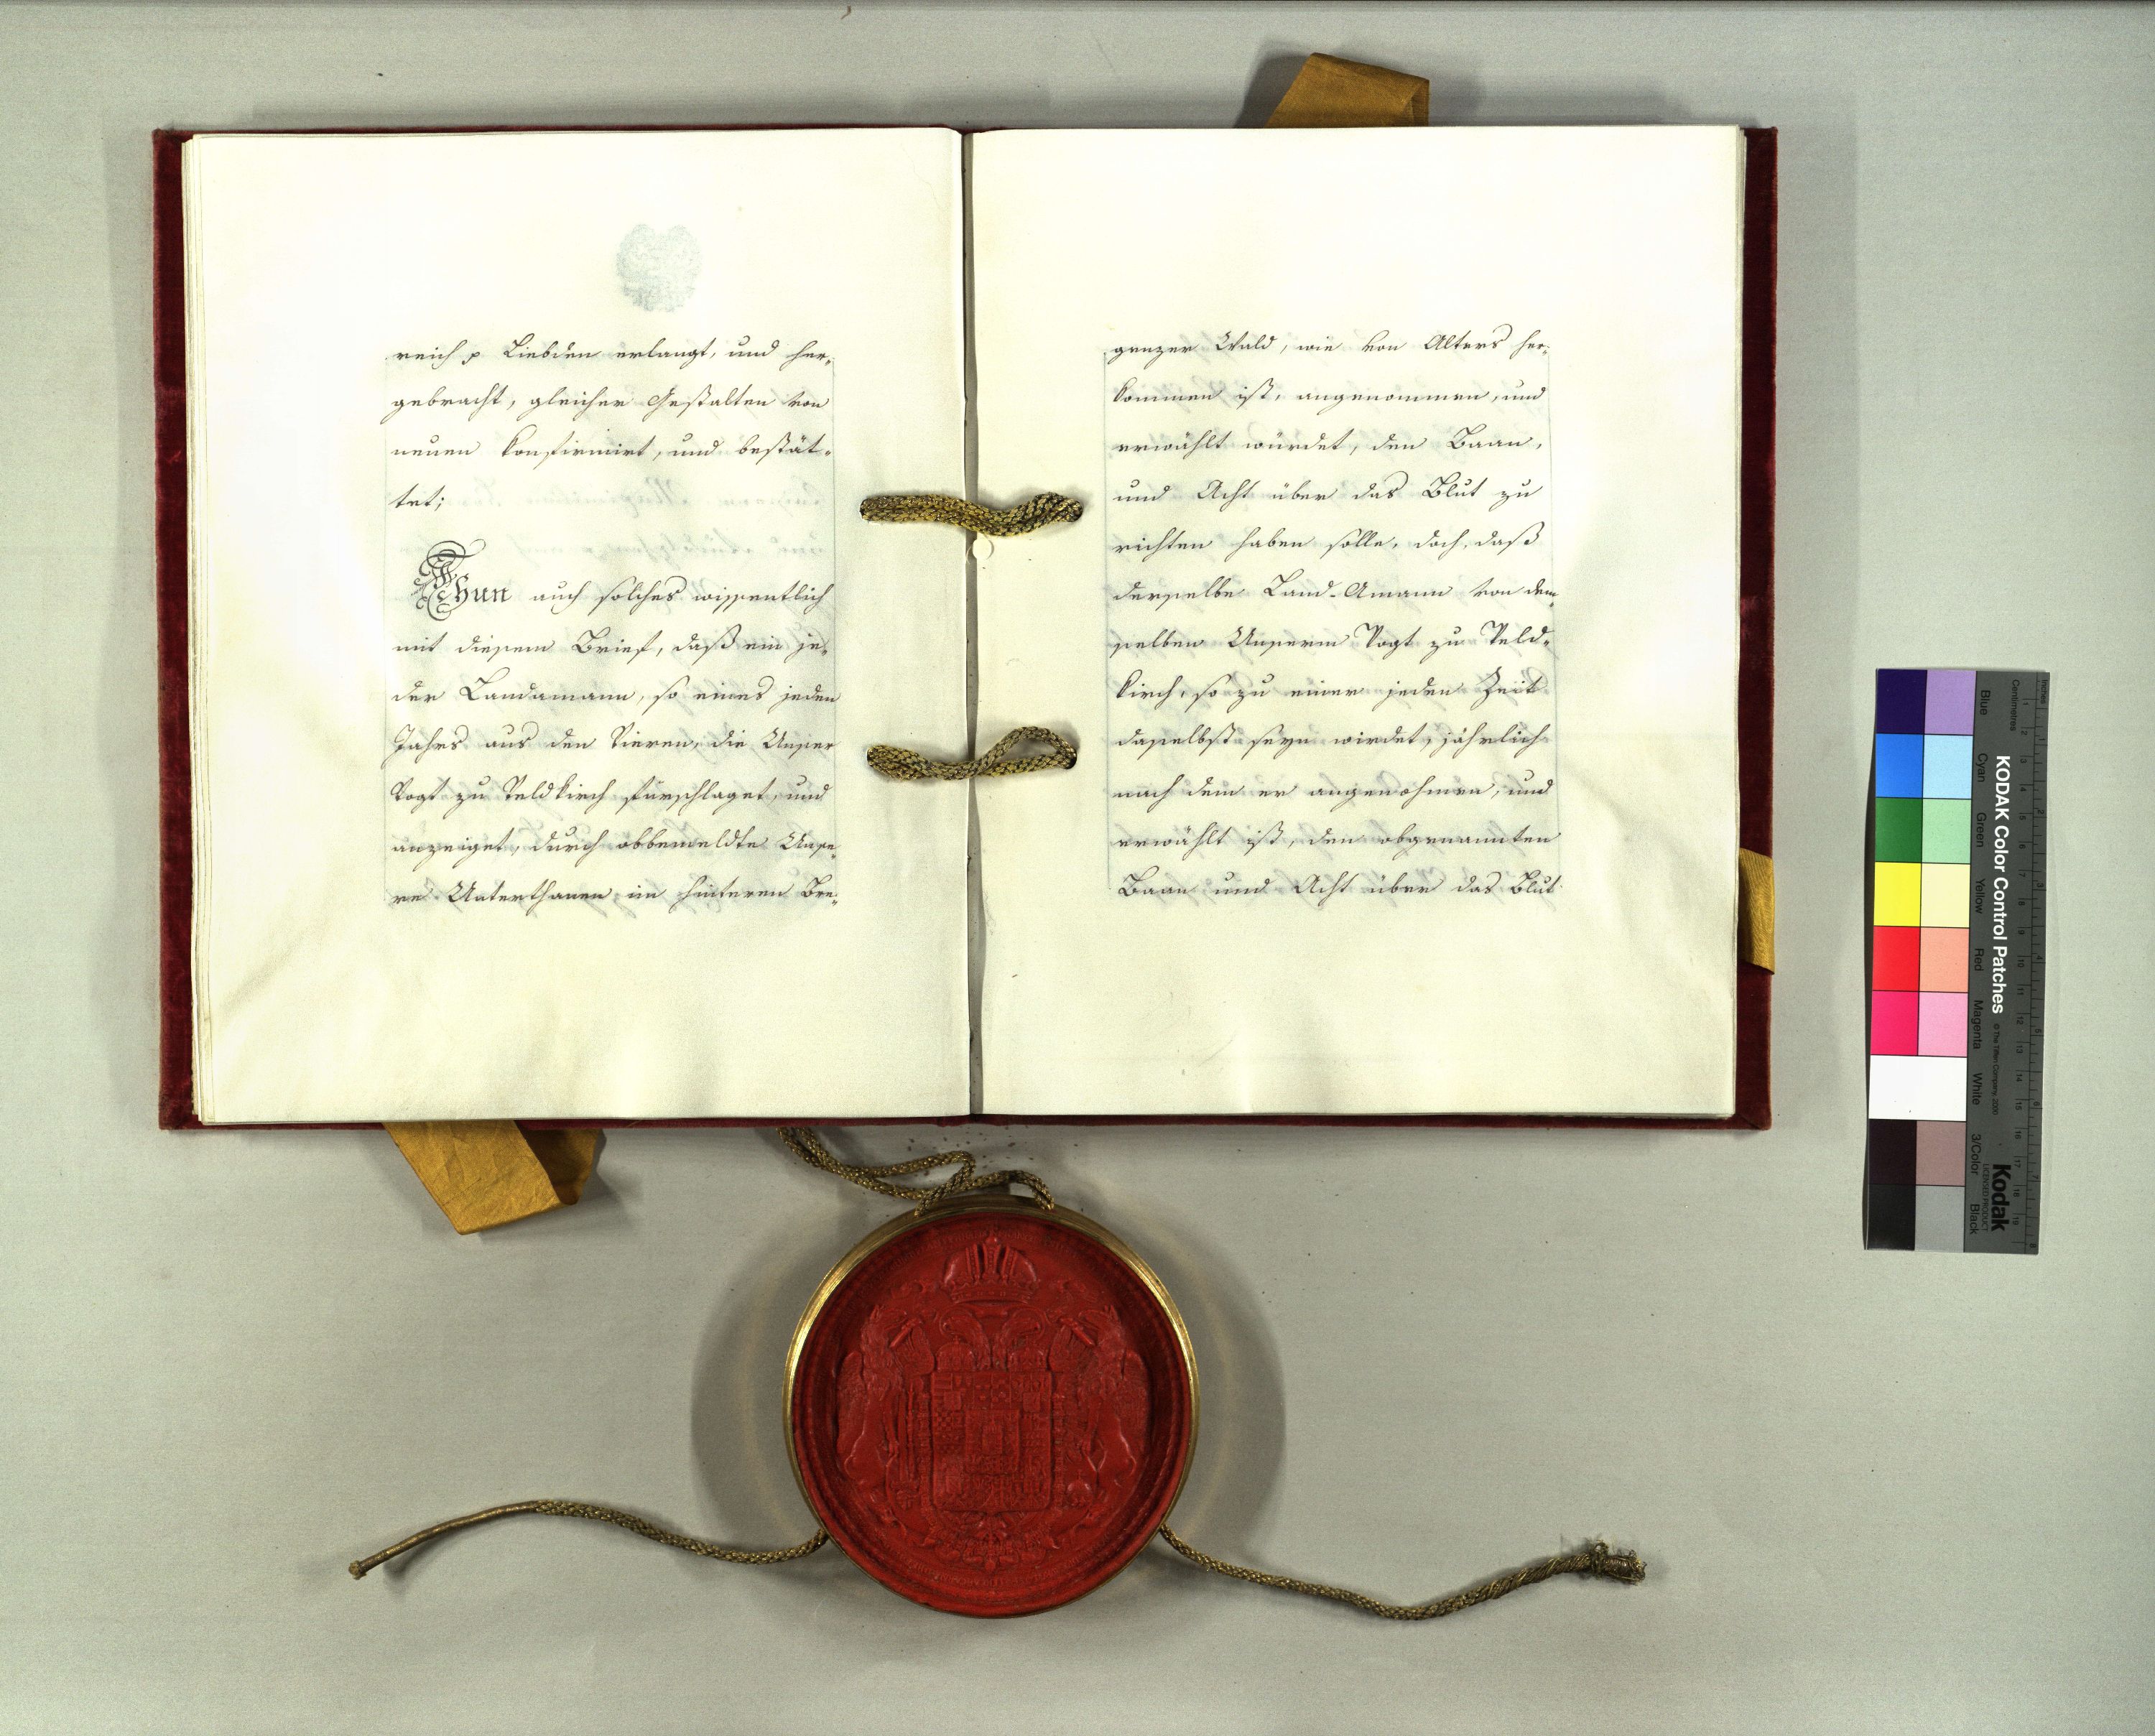 reich p Liebden erlangt, und her-
gebracht, gleicher Gestalten von
neuen konfirmirt, und bestät-
tet;
Thun auch solches wissentlich
mit diesem Brief, daß ein je-
der Landamann, so eines jeden
Jahrs aus den Vieren, die Unser
Vogt zu Veldkirch fürschlaget, und
anzeiget, durch obbemeldte Unse-
re Unterthanen im hinteren Bre-
genzer Wald, wie von Alters her-
kommen ist, angenommen, und
erwählt würdet, den Baan,
und Acht über das Blut zu
richten haben solle, doch, daß
derselbe Land-Amann von dem-
selben Unserm Vogt zu Veld-
kirch, so zu einer jeden Zeit
daselbst seyn wirdet, jährlich
nach dem er angenohmen, und
erwählt ist, den obgenannten
Baan und Acht über das Blut
KODAK Color Control Patches
© The Tiffen Company, 2000
Kodak
LICENSED PRODUCT
Blue Cyan Green Yellow Red Magenta White 3/Color Black
Centimetres
Inches